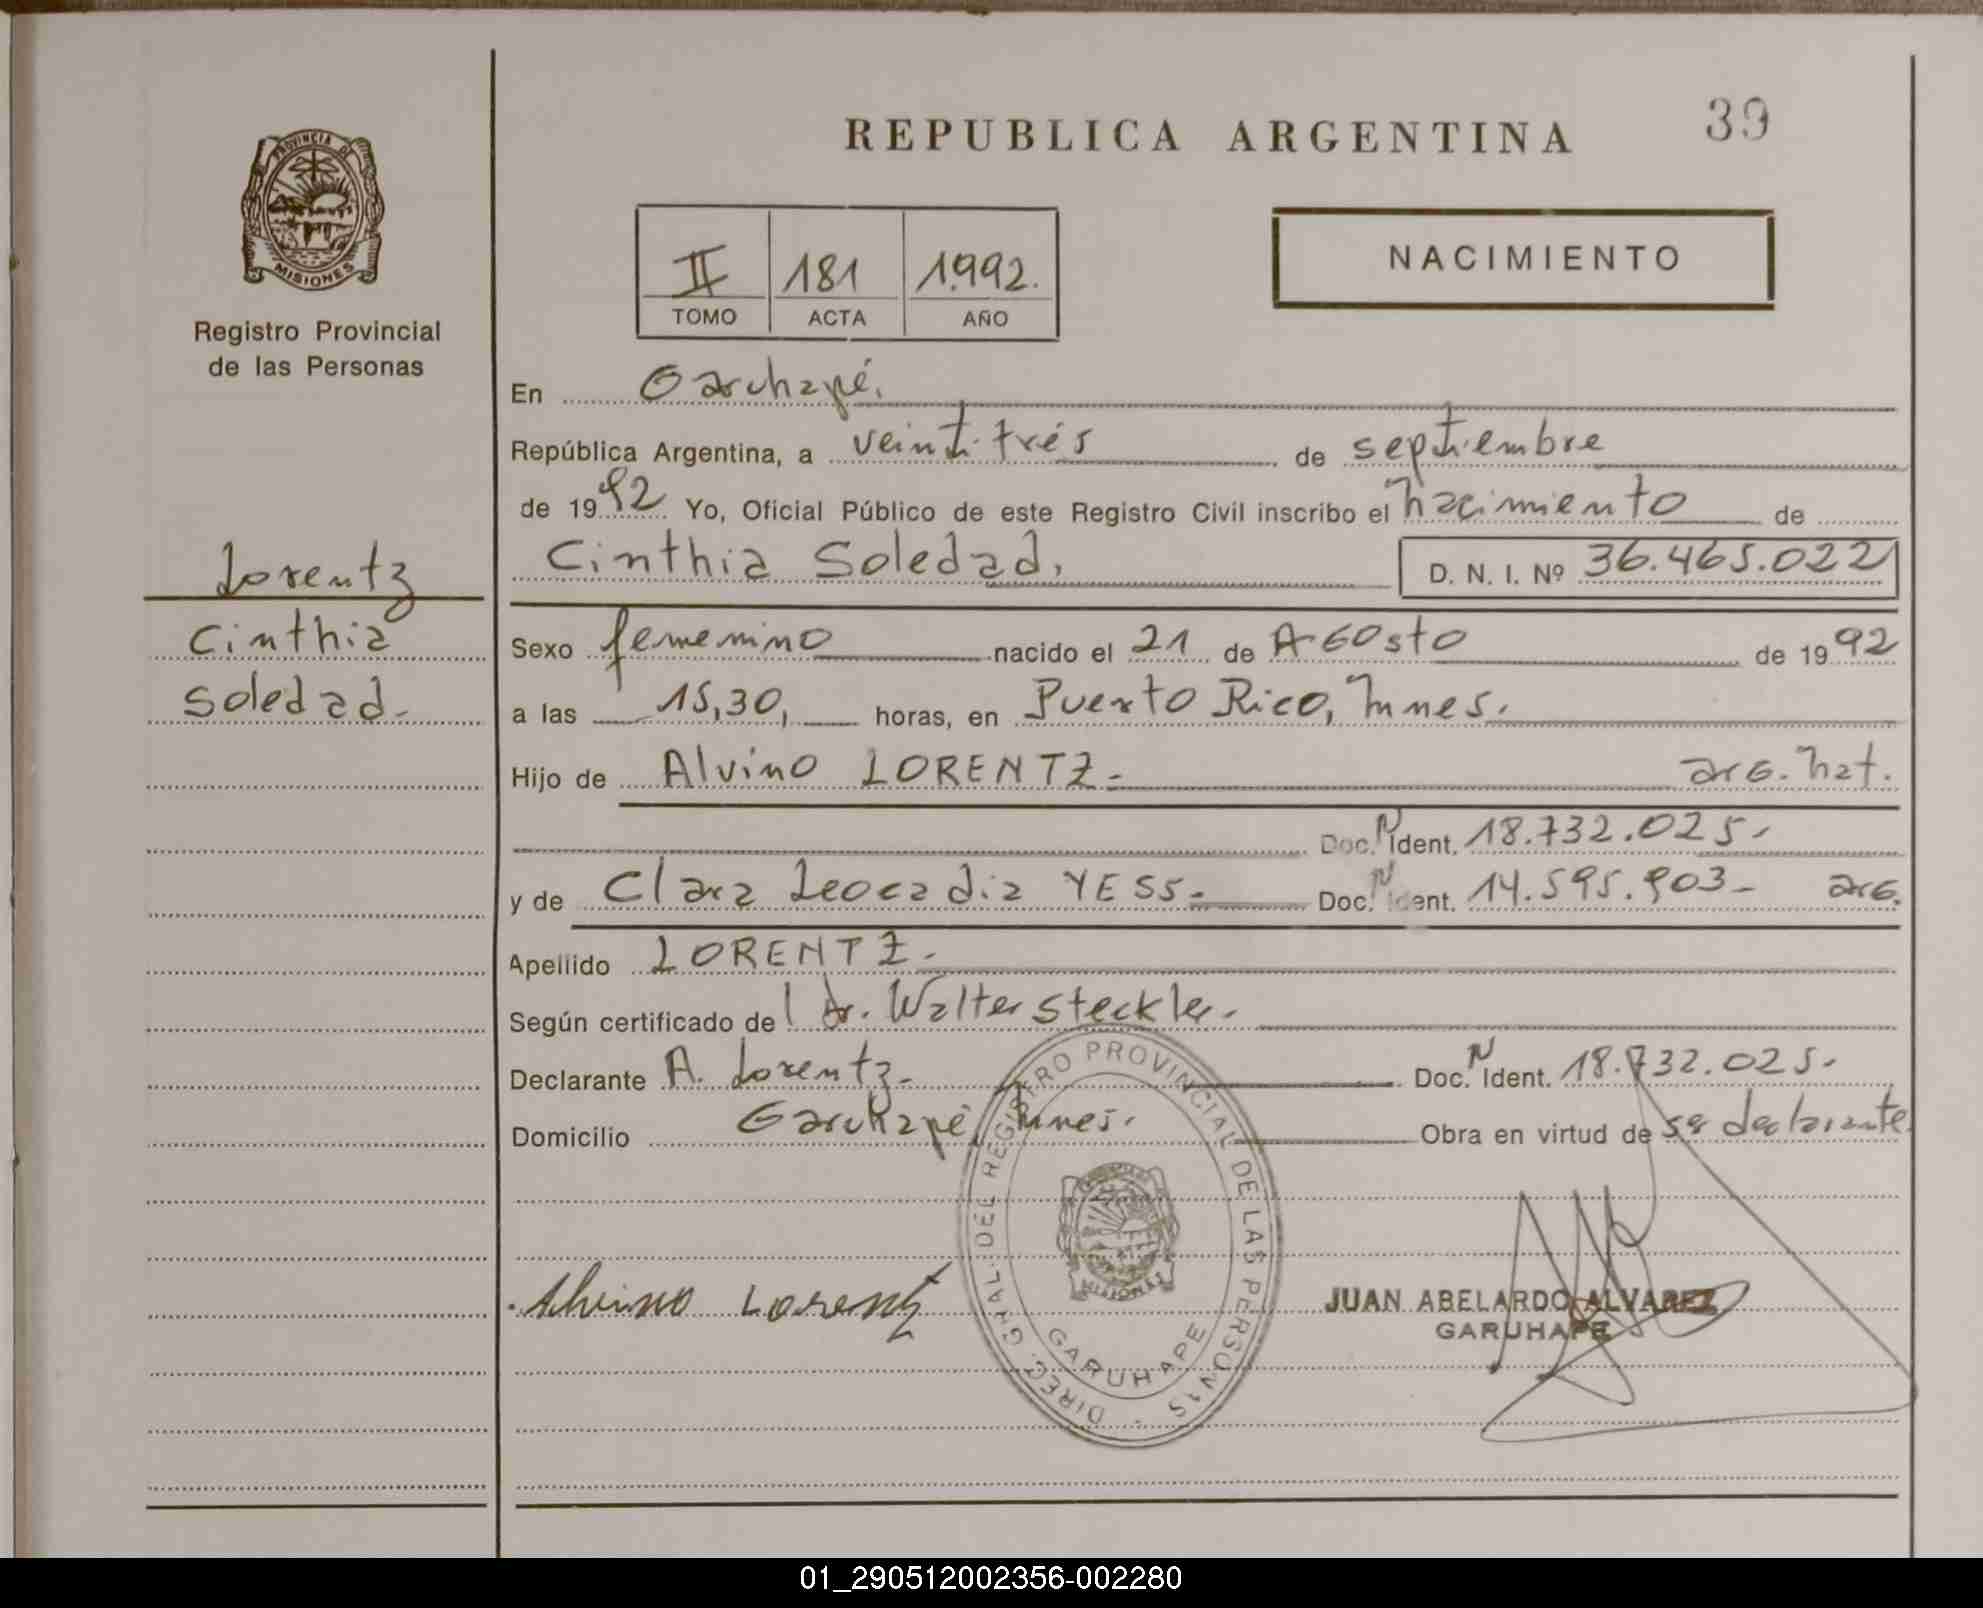 REPUBLICA ARGENTINA
39
PROVINCIA DE
MISIONES
Registro Provincial
de las Personas
II 181 1.992.
TOMO ACTA AÑO
NACIMIENTO
En Garuhapé.
República Argentina, a veintitrés de septiembre
de 1992 Yo, Oficial Público de este Registro Civil inscribo el nacimiento de
Cinthia Soledad, D. N. I. Nº 36.465.022
Lorentz
Cinthia
Soledad.
Sexo femenino nacido el 21 de AGosto de 1992
a las 15,30, horas, en Puerto Rico, Mnes.
Hijo de Alvino LORENTZ.- arG. nat.
Doc. N Ident. 18.732.025-
y de Clara Leocadia YESS.- Doc. N Ident. 14.595.903- arG.
Apellido LORENTZ.-
Según certificado del Dr. Walter Steckler.
Declarante A. Lorentz.- Doc. N Ident. 18.732.025.
Domicilio Garuhapé, Mnes. Obra en virtud de ser declarante
DIREC. GRAL. DEL REGISTRO PROVINCIAL DE LAS PERSONAS
MISIONES
GARUHAPE
Alvino Lorentz
JUAN ABELARDO ALVAREZ
GARUHAPE
01_290512002356-002280